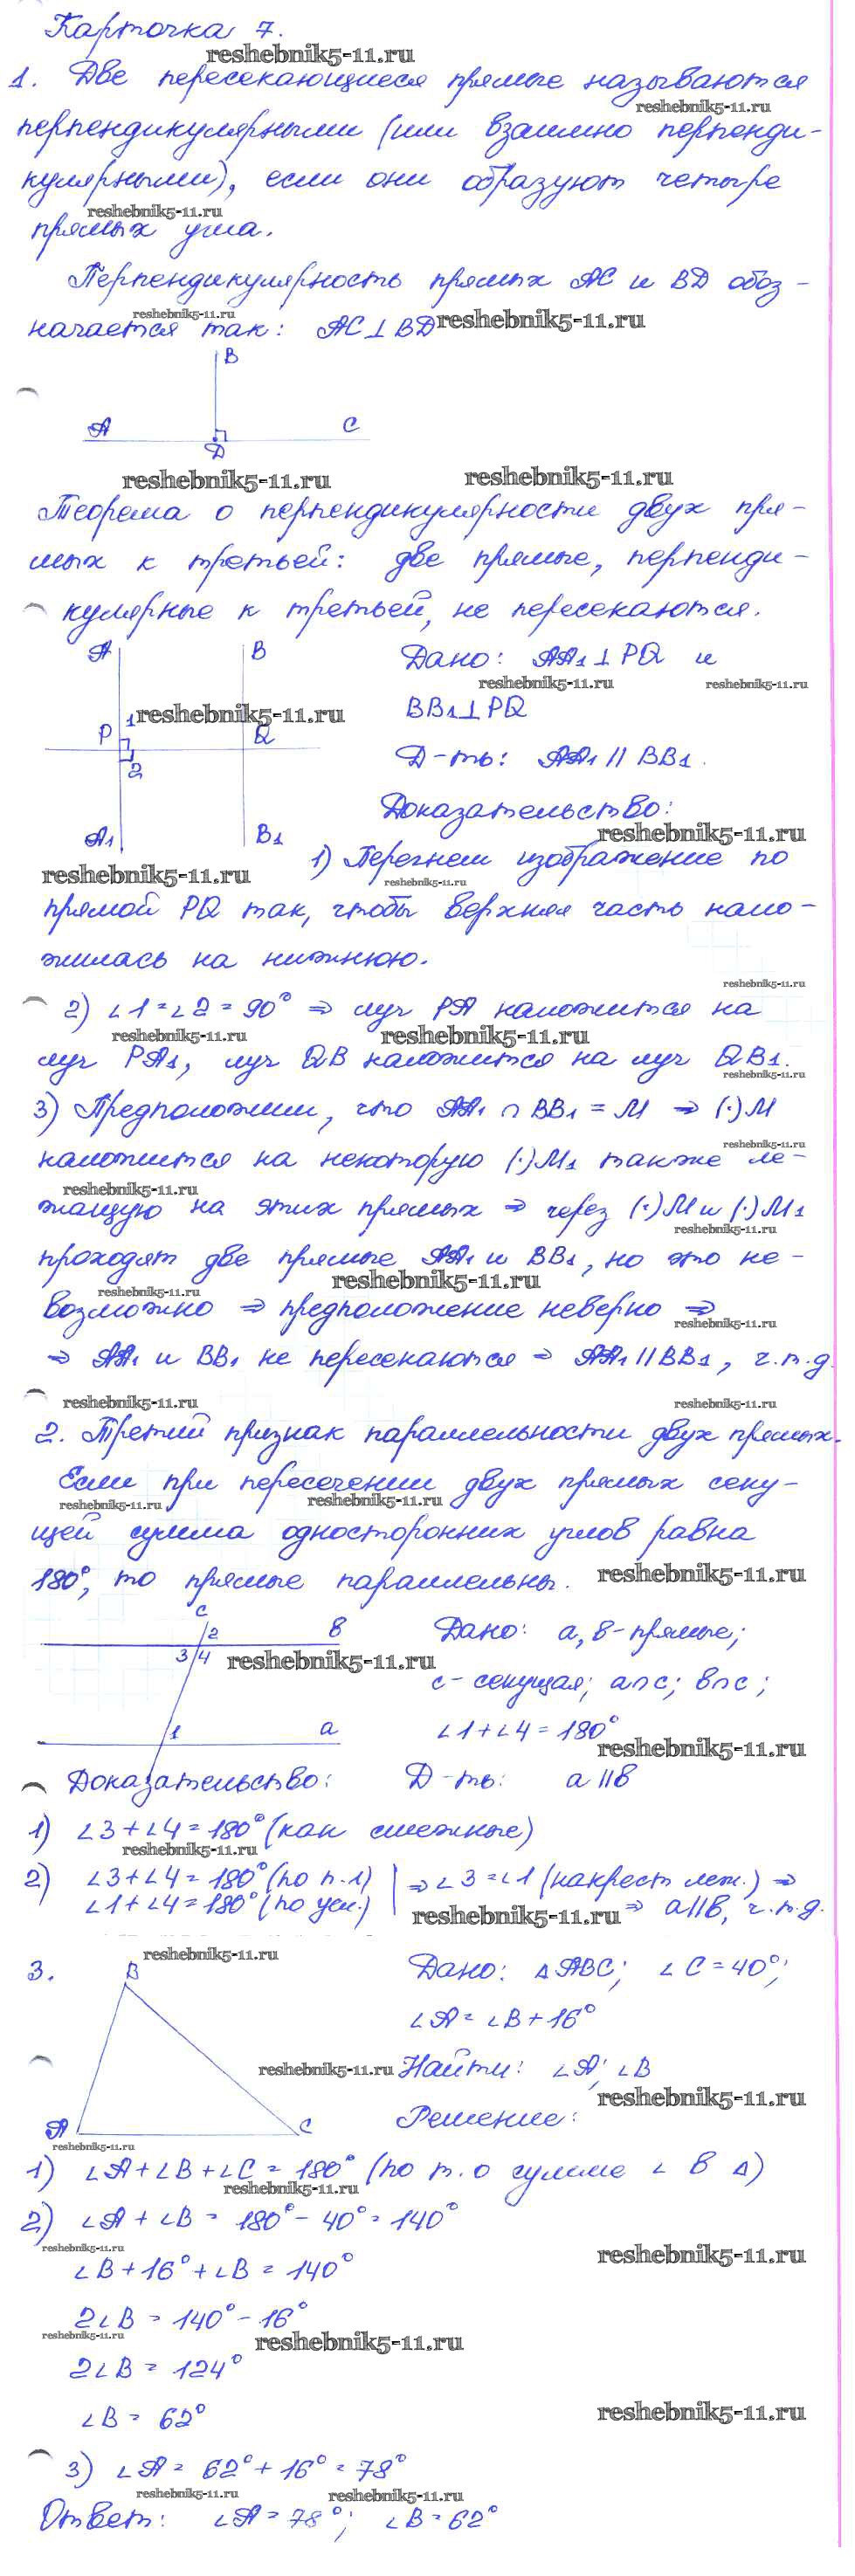 Карточка 7.
reshebnik5-11.ru
1. Две пересекающиеся прямые называются
reshebnik5-11.ru
перпендикулярными (или взаимно перпенди-
кулярными), если они образуют четыре
reshebnik5-11.ru
прямых угла.
Перпендикулярность прямых AC и BD обоз-
reshebnik5-11.ru
начается так: AC⊥BD
reshebnik5-11.ru
B
A
C
D
reshebnik5-11.ru
reshebnik5-11.ru
Теорема о перпендикулярности двух пря-
мых к третьей: две прямые, перпенди-
кулярные к третьей, не пересекаются.
A
B
Дано: AA₁⊥PQ и
reshebnik5-11.ru
reshebnik5-11.ru
1
reshebnik5-11.ru
BB₁⊥PQ
P
Q
2
Д-ть: AA₁ || BB₁.
A₁
B₁
Доказательство:
reshebnik5-11.ru
1) Перегнем изображение по
reshebnik5-11.ru
reshebnik5-11.ru
прямой PQ так, чтобы верхняя часть нало-
жилась на нижнюю.
reshebnik5-11.ru
2) ∠1=∠2=90° ⇒ луч PA наложится на
reshebnik5-11.ru
reshebnik5-11.ru
луч PA₁, луч QB наложится на луч QB₁.
reshebnik5-11.ru
3) Предположим, что AA₁ ∩ BB₁ = M ⇒ (·)M
reshebnik5-11.ru
наложится на некоторую (·)M₁ также ле-
reshebnik5-11.ru
жащую на этих прямых ⇒ через (·)M и (·)M₁
reshebnik5-11.ru
проходят две прямые AA₁ и BB₁, но это не-
reshebnik5-11.ru
reshebnik5-11.ru
возможно ⇒ предположение неверно ⇒
reshebnik5-11.ru
⇒ AA₁ и BB₁ не пересекаются ⇒ AA₁||BB₁, ч.т.д.
reshebnik5-11.ru
reshebnik5-11.ru
2. Третий признак параллельности двух прямых.
Если при пересечении двух прямых секу-
reshebnik5-11.ru
reshebnik5-11.ru
щей сумма односторонних углов равна
180°, то прямые параллельны.
reshebnik5-11.ru
c
2
в
3
4
reshebnik5-11.ru
1
a
Дано: a, в - прямые;
c - секущая; a∩c; в∩c;
∠1+∠4=180°
reshebnik5-11.ru
Доказательство:
Д-ть: a||в
1) ∠3+∠4=180° (как смежные)
reshebnik5-11.ru
2) ∠3+∠4=180° (по п.1) | ⇒ ∠3=∠1 (накрест леж.) ⇒
∠1+∠4=180° (по усл.) | ⇒ a||в, ч.т.д.
reshebnik5-11.ru
reshebnik5-11.ru
3.
B
A
C
Дано: ΔABC; ∠C=40°;
∠A=∠B+16°
reshebnik5-11.ru
Найти: ∠A; ∠B
reshebnik5-11.ru
Решение:
reshebnik5-11.ru
1) ∠A+∠B+∠C=180° (по т. о сумме ∠ в Δ)
reshebnik5-11.ru
2) ∠A+∠B=180°-40°=140°
reshebnik5-11.ru
reshebnik5-11.ru
∠B+16°+∠B=140°
2∠B=140°-16°
reshebnik5-11.ru
reshebnik5-11.ru
2∠B=124°
∠B=62°
reshebnik5-11.ru
3) ∠A=62°+16°=78°
reshebnik5-11.ru
reshebnik5-11.ru
Ответ: ∠A=78°; ∠B=62°